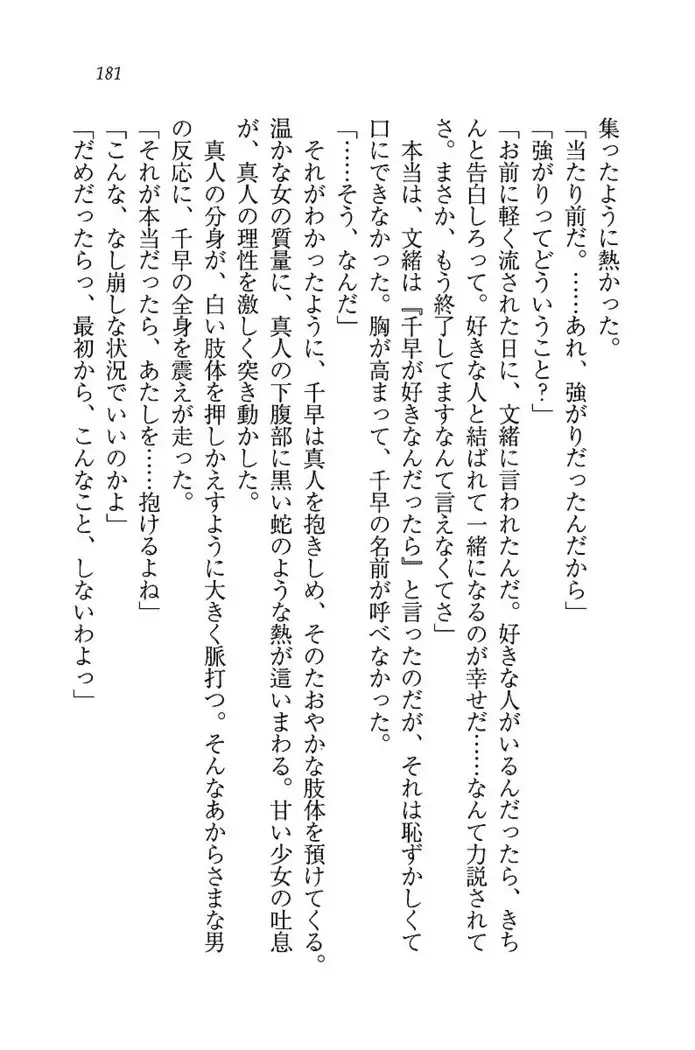 181
集ったように熱かった。
「当たり前だ。……あれ、強がりだったんだから」
「強がりってどういうこと?」
「お前に軽く流された日に、文緒に言われたんだ。好きな人がいるんだったら、きち
んと告白しろって。好きな人と結ばれて一緒になるのが幸せだ……なんて力説されて
さ。まさか、もう終了してますなんて言えなくてさ」
本当は、文緒は『千早が好きなんだったら』と言ったのだが、それは恥ずかしくて
口にできなかった。胸が高まって、千早の名前が呼べなかった。
「……そう、なんだ」
それがわかったように、千早は真人を抱きしめ、そのたおやかな肢体を預けてくる。
温かな女の質量に、真人の下腹部に黒い蛇のような熱が這いまわる。甘い少女の吐息
が、真人の理性を激しく突き動かした。
真人の分身が、白い肢体を押しかえすように大きく脈打つ。そんなあからさまな男
の反応に、千早の全身を震えが走った。
「それが本当だったら、あたしを……抱けるよね」
「こんな、なし崩しな状況でいいのかよ」
「だめだったらっ、最初から、こんなこと、しないわよっ」